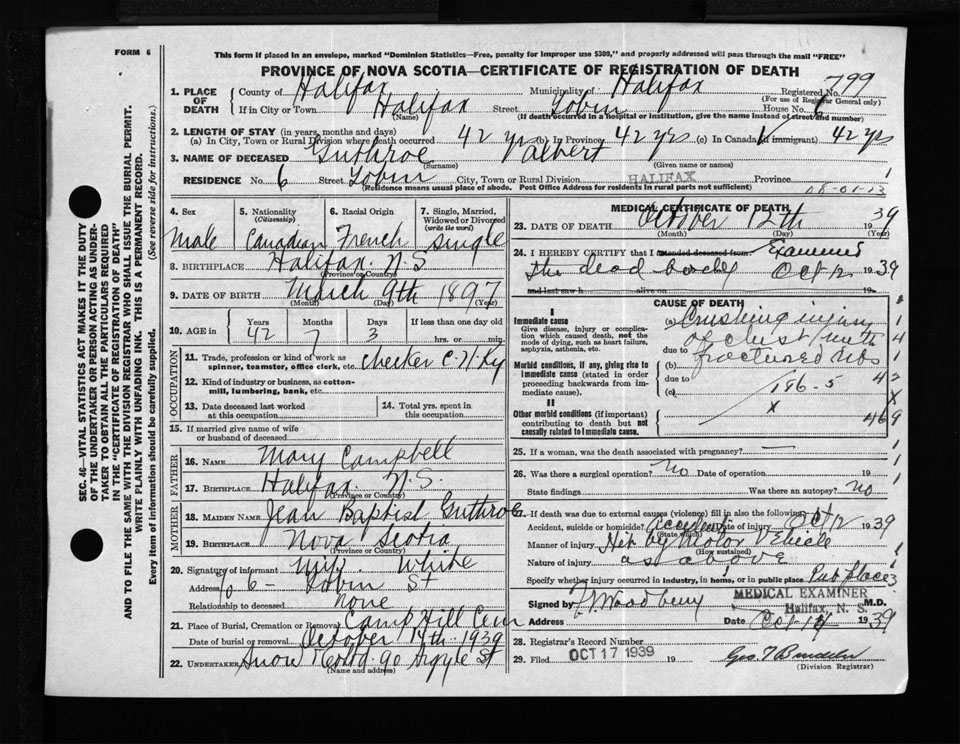 FORM 6
This form if placed in an envelope, marked "Dominion Statistics—Free, penalty for improper use $300," and properly addressed will pass through the mail "FREE"
PROVINCE OF NOVA SCOTIA—CERTIFICATE OF REGISTRATION OF DEATH
SEC. 46—VITAL STATISTICS ACT MAKES IT THE DUTY
OF THE UNDERTAKER OR PERSON ACTING AS UNDER-
TAKER TO OBTAIN ALL THE PARTICULARS REQUIRED
IN THE "CERTIFICATE OF REGISTRATION OF DEATH"
AND TO FILE THE SAME WITH THE DIVISION REGISTRAR WHO SHALL ISSUE THE BURIAL PERMIT.
WRITE PLAINLY WITH UNFADING INK. THIS IS A PERMANENT RECORD.
Every item of information should be carefully supplied. (See reverse side for instructions.)
1. PLACE OF DEATH County of Halifax Municipality of Halifax Registered No. 799
(For use of Registrar General only)
If in City or Town Halifax Street Tobin House No. 6
(Name) (If death occurred in a hospital or institution, give the name instead of street and number)
2. LENGTH OF STAY (in years, months and days)
(a) In City, Town or Rural Division where death occurred 42 yrs (b) In Province 42 yrs (c) In Canada (if immigrant) 42 yrs
3. NAME OF DECEASED Guthroe Valbert
(Surname) (Given name or names)
RESIDENCE No. 6 Street Tobin City, Town or Rural Division HALIFAX Province 1
(Residence means usual place of abode. Post Office Address for residents in rural parts not sufficient) 08-01-13
4. Sex 5. Nationality (Citizenship) 6. Racial Origin 7. Single, Married, Widowed or Divorced (write the word)
Male Canadian French Single
8. BIRTHPLACE Halifax. N.S
(Province or Country)
9. DATE OF BIRTH March 9th 1897
(Month) (Day) (Year)
10. AGE in Years Months Days If less than one day old
42 7 3 hrs. or min.
OCCUPATION
11. Trade, profession or kind of work as spinner, teamster, office clerk, etc. Checker C.N.Ry
12. Kind of industry or business, as cotton-mill, lumbering, bank, etc.
13. Date deceased last worked at this occupation
14. Total yrs. spent in this occupation
15. If married give name of wife or husband of deceased
FATHER
16. NAME Mary Campbell
17. BIRTHPLACE Halifax N.S.
(Province or Country)
MOTHER
18. MAIDEN NAME Jean Baptist Guthroe
19. BIRTHPLACE Nova Scotia
(Province or Country)
20. Signature of informant White
Address 6 - Tobin St
Relationship to deceased none
21. Place of Burial, Cremation or Removal Camp Hill Cem
Date of burial or removal October 14th 1939
22. UNDERTAKER Snow & Co Ltd. 90 Argyle St
(Name and address)
MEDICAL CERTIFICATE OF DEATH
23. DATE OF DEATH October 12th 1939
(Month) (Day) (Year)
24. I HEREBY CERTIFY that I attended deceased from Examined
the dead body Oct 12 1939
and last saw h alive on 19
CAUSE OF DEATH
I
Immediate cause
Give disease, injury or complication which caused death, not the mode of dying, such as heart failure, asphyxia, asthenia, etc.
(a) Crushing injury
of chest with
due to
fractured ribs
(b)
Morbid conditions, if any, giving rise to immediate cause (stated in order proceeding backwards from immediate cause)
due to
(c) 186-5
II
Other morbid conditions (if important) contributing to death but not causally related to immediate cause.
x 469
25. If a woman, was the death associated with pregnancy? —
26. Was there a surgical operation? No Date of operation 19
State findings Was there an autopsy? No
27. If death was due to external causes (violence) fill in also the following
Accident, suicide or homicide? Accident Date of injury Oct 12 1939
(State which)
Manner of injury Hit by Motor Vehicle
(How sustained)
Nature of injury as above
Specify whether injury occurred in industry, in home, or in public place Pub place
Signed by Woodbury M.D.
MEDICAL EXAMINER
Halifax, N. S.
Address Date Oct 14 1939
28. Registrar's Record Number
29. Filed OCT 17 1939 19
(Division Registrar)